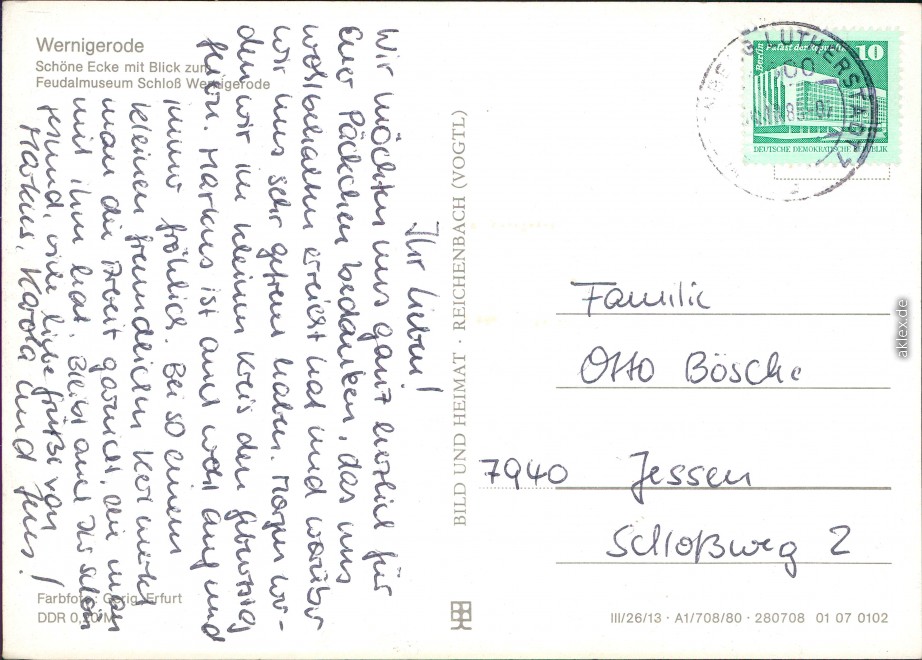 Wernigerode
Schöne Ecke mit Blick zum
Feudalmuseum Schloß Wernigerode
Ihr Lieben!
Wir möchten uns ganz herzlich für
Euer Päckchen bedanken, das uns
wohlbehalten erreicht hat und worüber
wir uns sehr gefreut haben. Morgen wer-
den wir im kleinen Kreis den Geburtstag
feiern. Markus ist auch wohl auf und
immer fröhlich. Bei so einem
kleinen freundlichen Kerl merkt
man die Arbeit garnicht, die man
mit ihm hat. Bleibt auch Ihr schön
gesund, viele liebe Grüße von
Markus, Karola und Jens!
Farbfoto: Gerig, Erfurt
DDR 0,20 M
BILD UND HEIMAT · REICHENBACH (VOGTL)
Berlin Palast der Republik
10
DEUTSCHE DEMOKRATISCHE REPUBLIK
LUTHERSTADT
Familie
Otto Bösche
7940 Jessen
Schloßweg 2
III/26/13 · A1/708/80 · 280708 01 07 0102
aklex.de